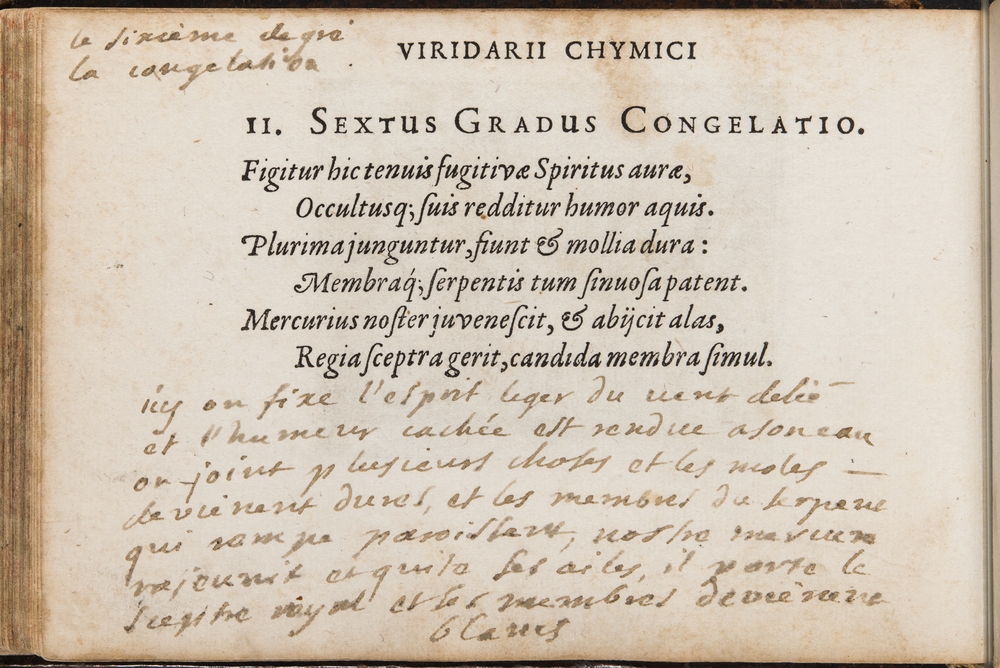 le sixième degré
la congelation .
VIRIDARII CHYMICI
II. SEXTUS GRADUS CONGELATIO.
Figitur hic tenuis fugitivæ Spiritus auræ,
Occultusq; suis redditur humor aquis.
Plurima junguntur, fiunt & mollia dura :
Membraq́; serpentis tum sinuosa patent.
Mercurius noster juvenescit, & abijcit alas,
Regia sceptra gerit, candida membra simul.
icy on fixe l'esprit leger du vent delié
et l'humeur cachée est rendue a son eau
on joint plusieurs choses et les moles
deviènent dures, et les membres du serpent
qui rampe paroissent, nostre mercure
rajeunit et quite ses ailes, il porte le
sceptre royal et les membres deviènent
blancs